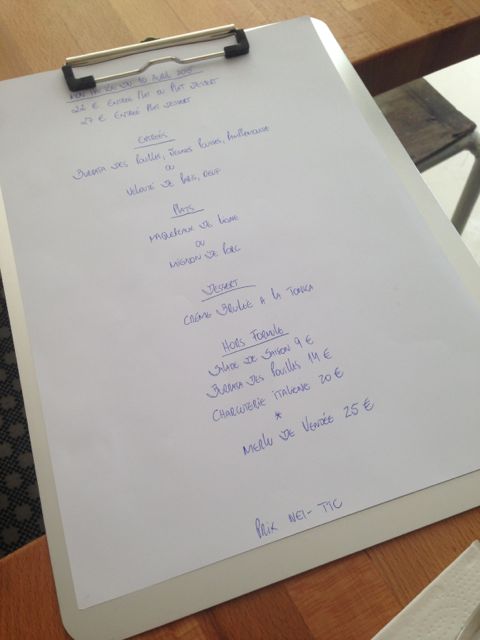 DU 10 AVRIL 2015
22 € ENTRÉE PLAT OU PLAT DESSERT
27 € ENTRÉE PLAT DESSERT
ENTRÉES
BURRATA DES POUILLES, JEUNES POUSSES, PAMPLEMOUSSE
OU
VELOUTÉ DE POIS, OEUF
PLATS
MAQUEREAUX DE LIGNE
OU
MIGNON DE PORC
DESSERT
CRÈME BRULÉE A LA TONKA
HORS FORMULE
SALADE DE SAISON 9 €
BURRATA DES POUILLES 14 €
CHARCUTERIE ITALIENNE 20 €
*
MERLU DE VENDÉE 25 €
PRIX NET - TTC